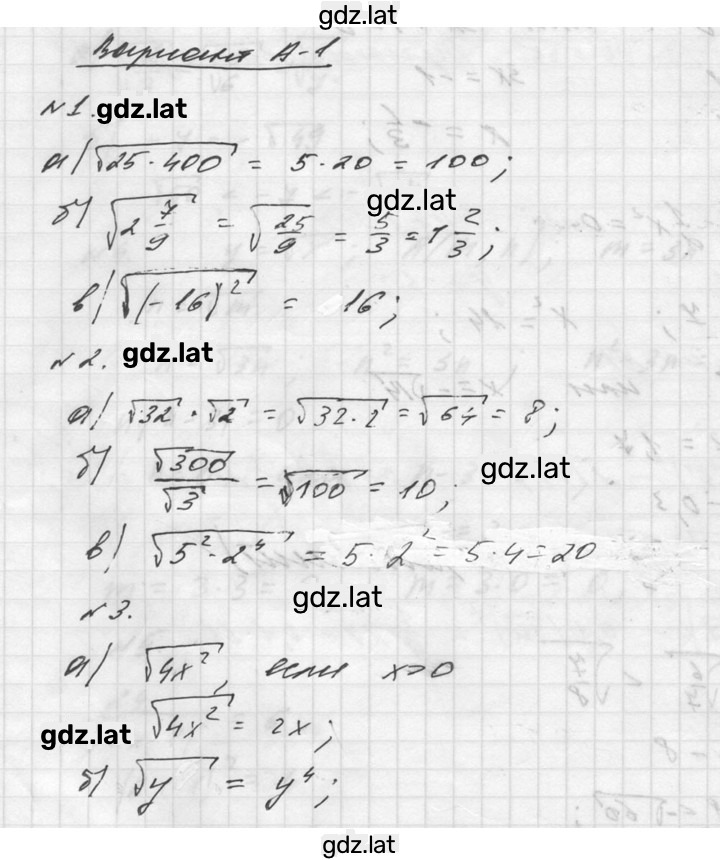 gdz.lat
Вариант А-1
№1. gdz.lat
а) √(25·400) = 5·20 = 100;
gdz.lat
б) √(2 7/9) = √(25/9) = 5/3 = 1 2/3;
в) √((-16)²) = 16;
№2. gdz.lat
а) √32 · √2 = √(32·2) = √64 = 8;
б) √300/√3 = √100 = 10; gdz.lat
в) √(5²·2⁴) = 5·2² = 5·4 = 20
gdz.lat
№3.
а) √(4x²), если x>0
gdz.lat √(4x²) = 2x;
б) √y = y⁴;
gdz.lat